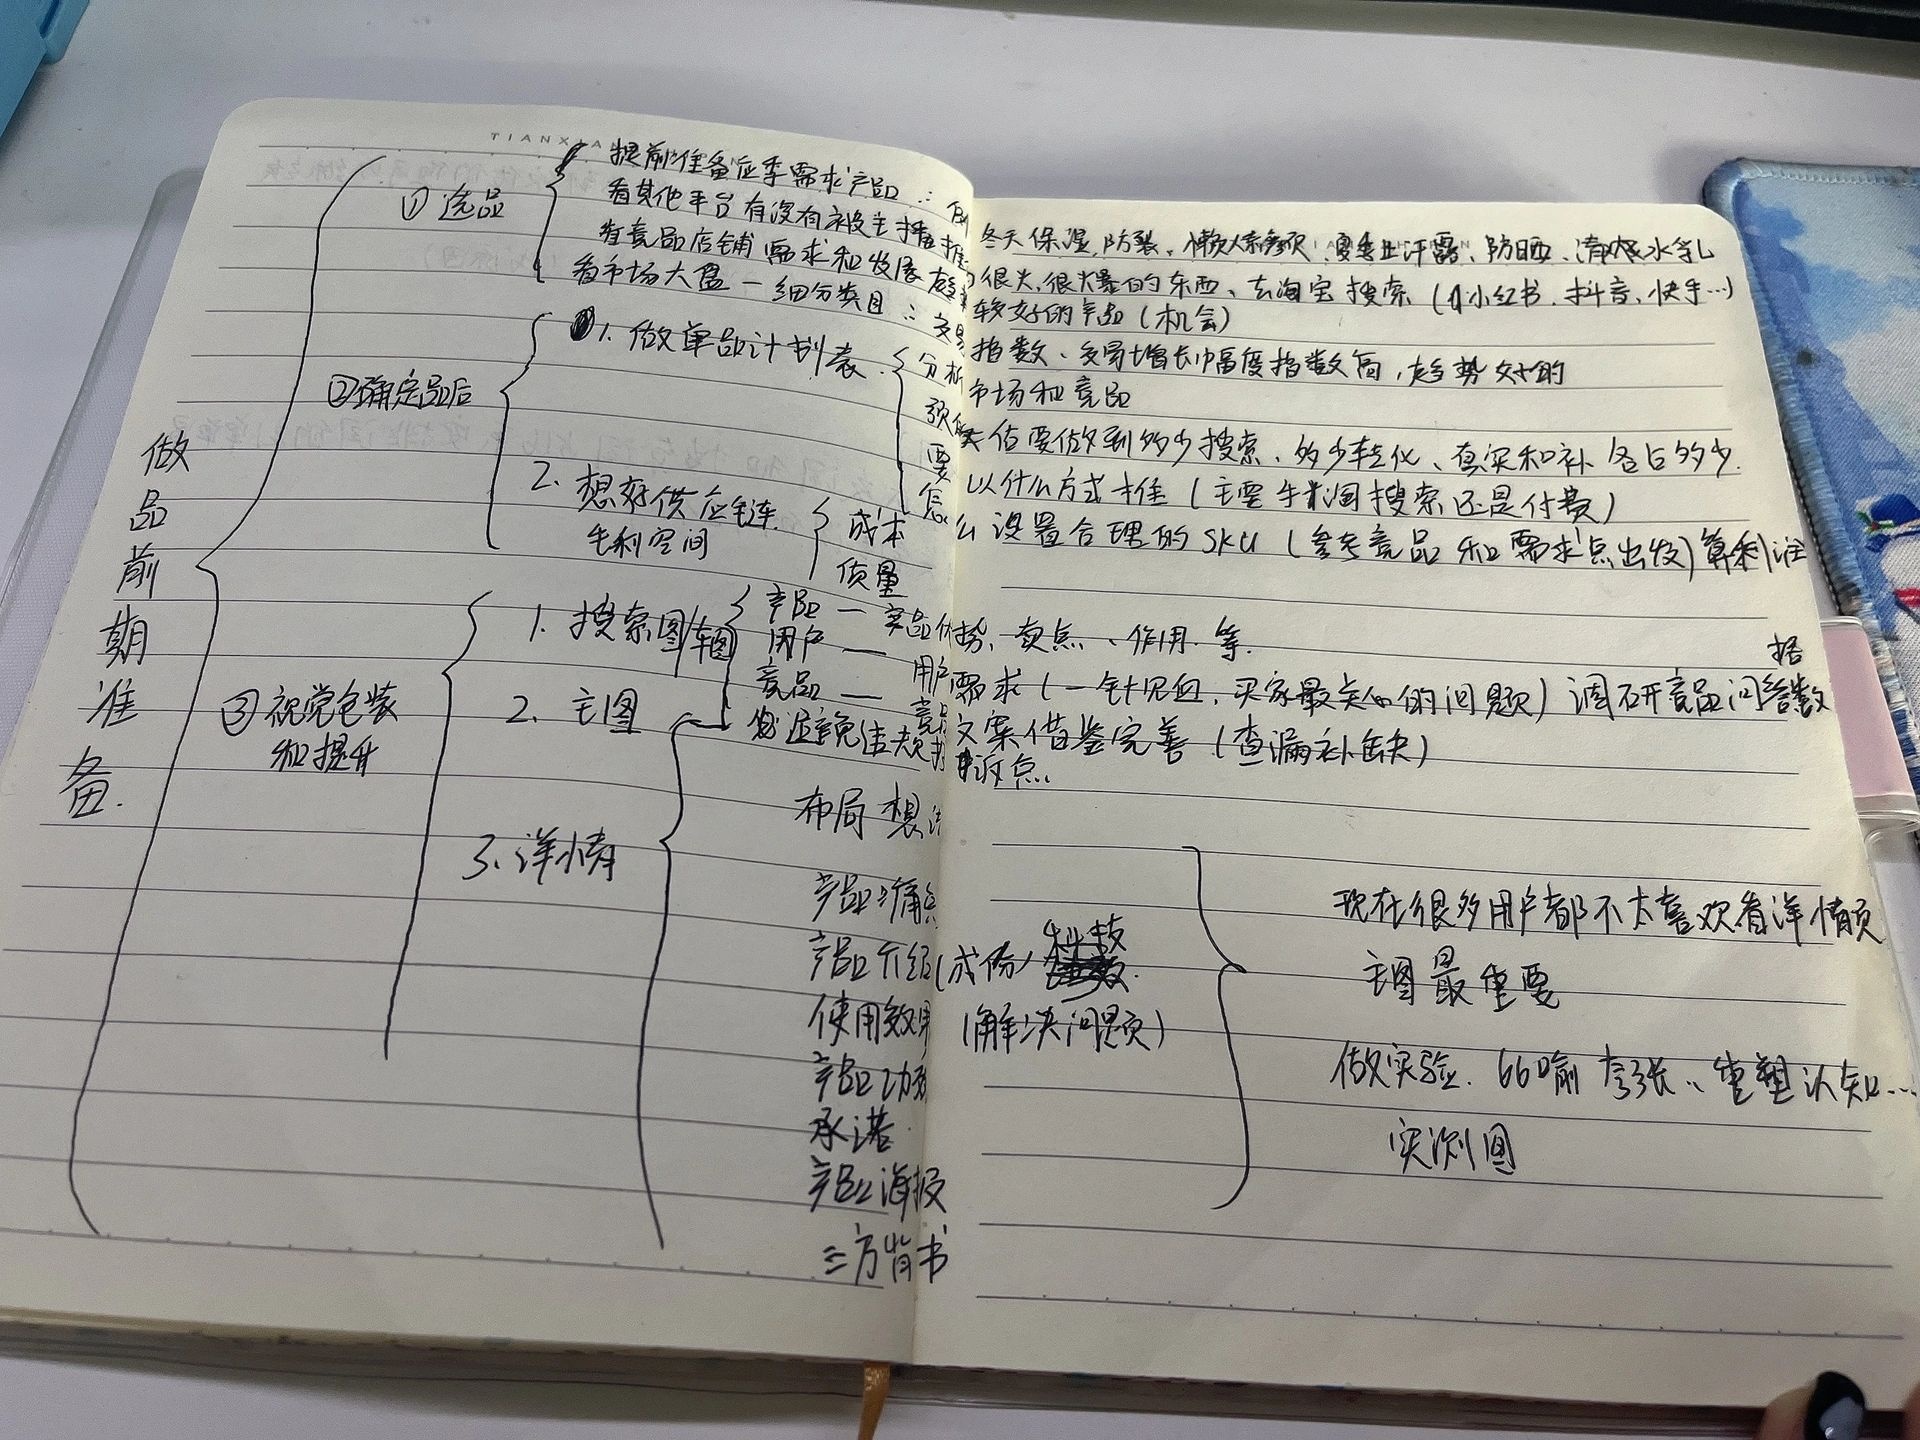 TIANXIA
做品前期准备.
① 选品
提前准备应季需求产品: 例冬天保湿,防裂,懒人素颜,夏季止汗露、防晒、清凉水等
看其他平台有没有被主播推的很火,很火爆的东西、去淘宝搜索(如小红书.抖音、快手…)
找竞品店铺 需求和发展 较好的产品(机会)
看市场大盘—细分类目: 交易指数、交易增长幅度指数高,趋势好的
②确定品后
1. 做单品计划表.
分析市场和竞品
预估要做到多少搜索、多少转化、真实和补各占多少.
要以什么方式推(主要手淘搜索还是付费)
怎么设置合理的SKU(参考竞品和需求点出发)算利润
2. 想好供应链.
毛利空间
成本
质量
③ 视觉包装
和提升
1. 搜索图/车图
2. 主图
产品 — 产品优势、卖点、作用.等.
用户 — 用户需求(一针见血,买家最关心的问题)调研竞品问答数据
竞品 — 竞品文案借鉴完善(查漏补缺)
避免违规
3、详情
布局 想法
产品:痛点
产品介绍(成份)
使用效果(解决问题)
产品功效
承诺.
产品海报
三方背书
现在很多用户都不太喜欢看详情页
主图最重要
做实验.比喻 夸张、重塑认知…
实测图